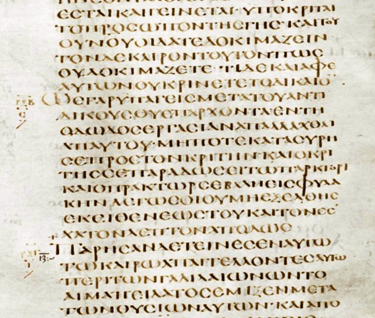 ΕϹΤΑΙΚΑΙΓΕΙΝΕΤΑΙΥΠΟΚΡΙΤΑΙ
ΤΟΠΡΟϹΩΠΟΝΤΗϹΓΗϹΚΑΙΤΟΥ
ΟΥΝΟΥΟΙΔΑΤΕΔΟΚΙΜΑΖΕΙΝ
ΤΟΝΔΕΚΑΙΡΟΝΤΟΥΤΟΝΠΩϹ
ΟΥΔΟΚΙΜΑΖΕΤΕ·ΤΙΔΕΚΑΙΑΦΕ
ΑΥΤΩΝΟΥΚΡΙΝΕΤΕΤΟΔΙΚΑΙΟ
ΩϹΓΑΡΥΠΑΓΕΙϹΜΕΤΑΤΟΥΑΝΤΙ
ΔΙΚΟΥϹΟΥΕΠΑΡΧΟΝΤΑΕΝΤΗ
ΟΔΩΔΟϹΕΡΓΑϹΙΑΝΑΠΗΛΛΑΧΘΑΙ
ΑΠΑΥΤΟΥ·ΜΗΠΟΤΕΚΑΤΑϹΥΡΗ
ϹΕΠΡΟϹΤΟΝΚΡΙΤΗΝ·ΚΑΙΟΚΡΙ
ΤΗϹϹΕΠΑΡΑΔΩϹΕΙΤΩΠΡΑΚΤΟΡΙ
ΚΑΙΟΠΡΑΚΤΩΡϹΕΒΑΛΗΕΙϹΦΥΛΑ
ΚΗΝΛΕΓΩϹΟΙΟΥΜΗΕΞΕΛΘΗϹ
ΕΚΕΙΘΕΝΕΩϹΤΟΥΚΑΙΤΟΝΕϹ
ΧΑΤΟΝΛΕΠΤΟΝΑΠΟΔΩϹ
ΠΑΡΗϹΑΝΔΕΤΙΝΕϹΕΝΑΥΤΩ
ΤΩΚΑΙΡΩΑΠΑΓΓΕΛΛΟΝΤΕϹΑΥΤΩ
ΠΕΡΙΤΩΝΓΑΛΙΛΑΙΩΝΩΝΤΟ
ΑΙΜΑΠΕΙΛΑΤΟϹΕΜΙΞΕΝΜΕΤΑ
ΤΩΝΘΥϹΙΩΝΑΥΤΩΝΚΑΙΑΠΟ